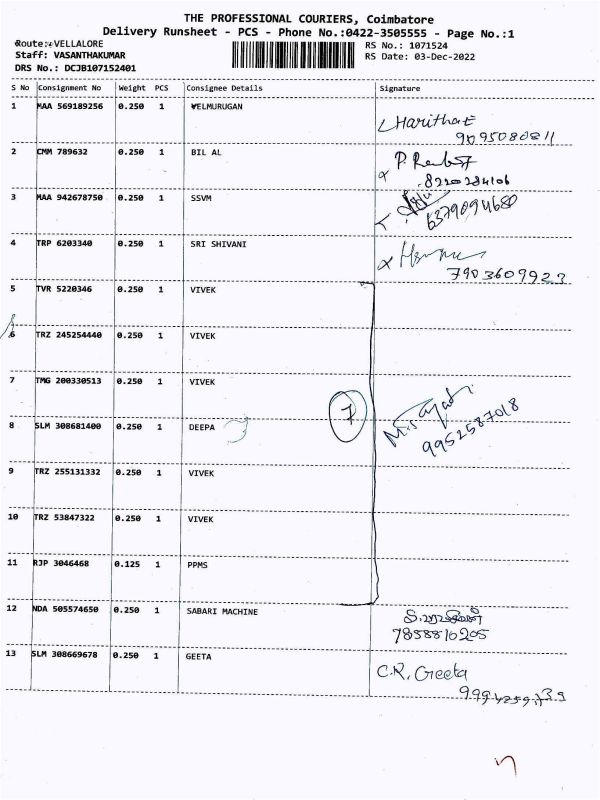 THE PROFESSIONAL COURIERS, Coimbatore
Delivery Runsheet - PCS - Phone No.:0422-3505555 - Page No.:1
Route: VELLALORE
RS No.: 1071524
Staff: VASANTHAKUMAR
RS Date: 03-Dec-2022
DRS No.: DCJB107152401
S No Consignment No Weight PCS Consignee Details Signature
1 MAA 569189256 0.250 1 VELMURUGAN
Haritha E
9095080811
2 CMM 789632 0.250 1 BIL AL
8220284106
3 MAA 942678750 0.250 1 SSVM
6379094680
4 TRP 6203340 0.250 1 SRI SHIVANI
7903609923
5 TVR 5220346 0.250 1 VIVEK
6 TRZ 245254440 0.250 1 VIVEK
7 TMG 200330513 0.250 1 VIVEK
7
8 SLM 308681400 0.250 1 DEEPA
9952587018
9 TRZ 255131332 0.250 1 VIVEK
10 TRZ 53847322 0.250 1 VIVEK
11 RJP 3046468 0.125 1 PPMS
12 NDA 505574650 0.250 1 SABARI MACHINE
7858816205
13 SLM 308669678 0.250 1 GEETA
C.R. Geeta